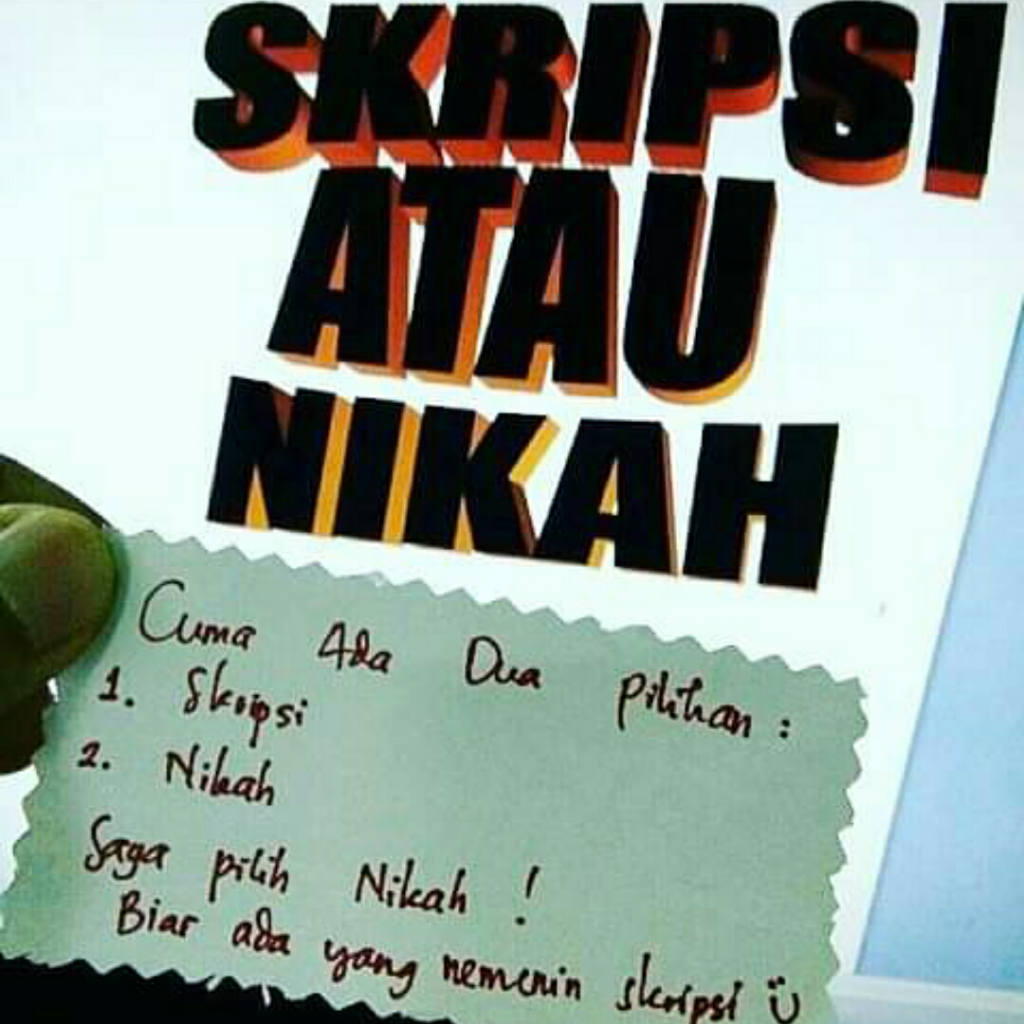 SKRIPSI
ATAU
NIKAH
Cuma Ada Dua Pilihan :
1. Skripsi
2. Nikah
Saya pilih Nikah !
Biar ada yang nemenin skripsi Ü